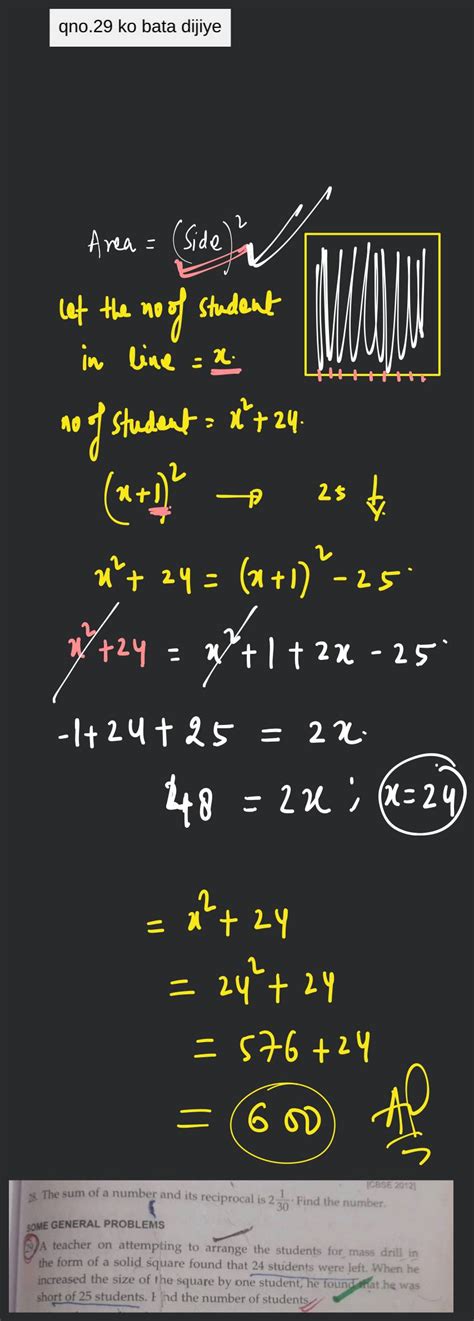 qno.29 ko bata dijiye
Area = (Side)²
let the no of student
in line = x.
no of student = x² + 24.
(x+1)² → 25 ↓
x² + 24 = (x+1)² - 25.
x² + 24 = x² + 1 + 2x - 25
-1 + 24 + 25 = 2x.
48 = 2x ; x = 24
= x² + 24
= 24² + 24
= 576 + 24
= 600
[CBSE 2012]
28. The sum of a number and its reciprocal is 2 1/30. Find the number.
SOME GENERAL PROBLEMS
29. A teacher on attempting to arrange the students for mass drill in
the form of a solid square found that 24 students were left. When he
increased the size of the square by one student, he found that he was
short of 25 students. Find the number of students.